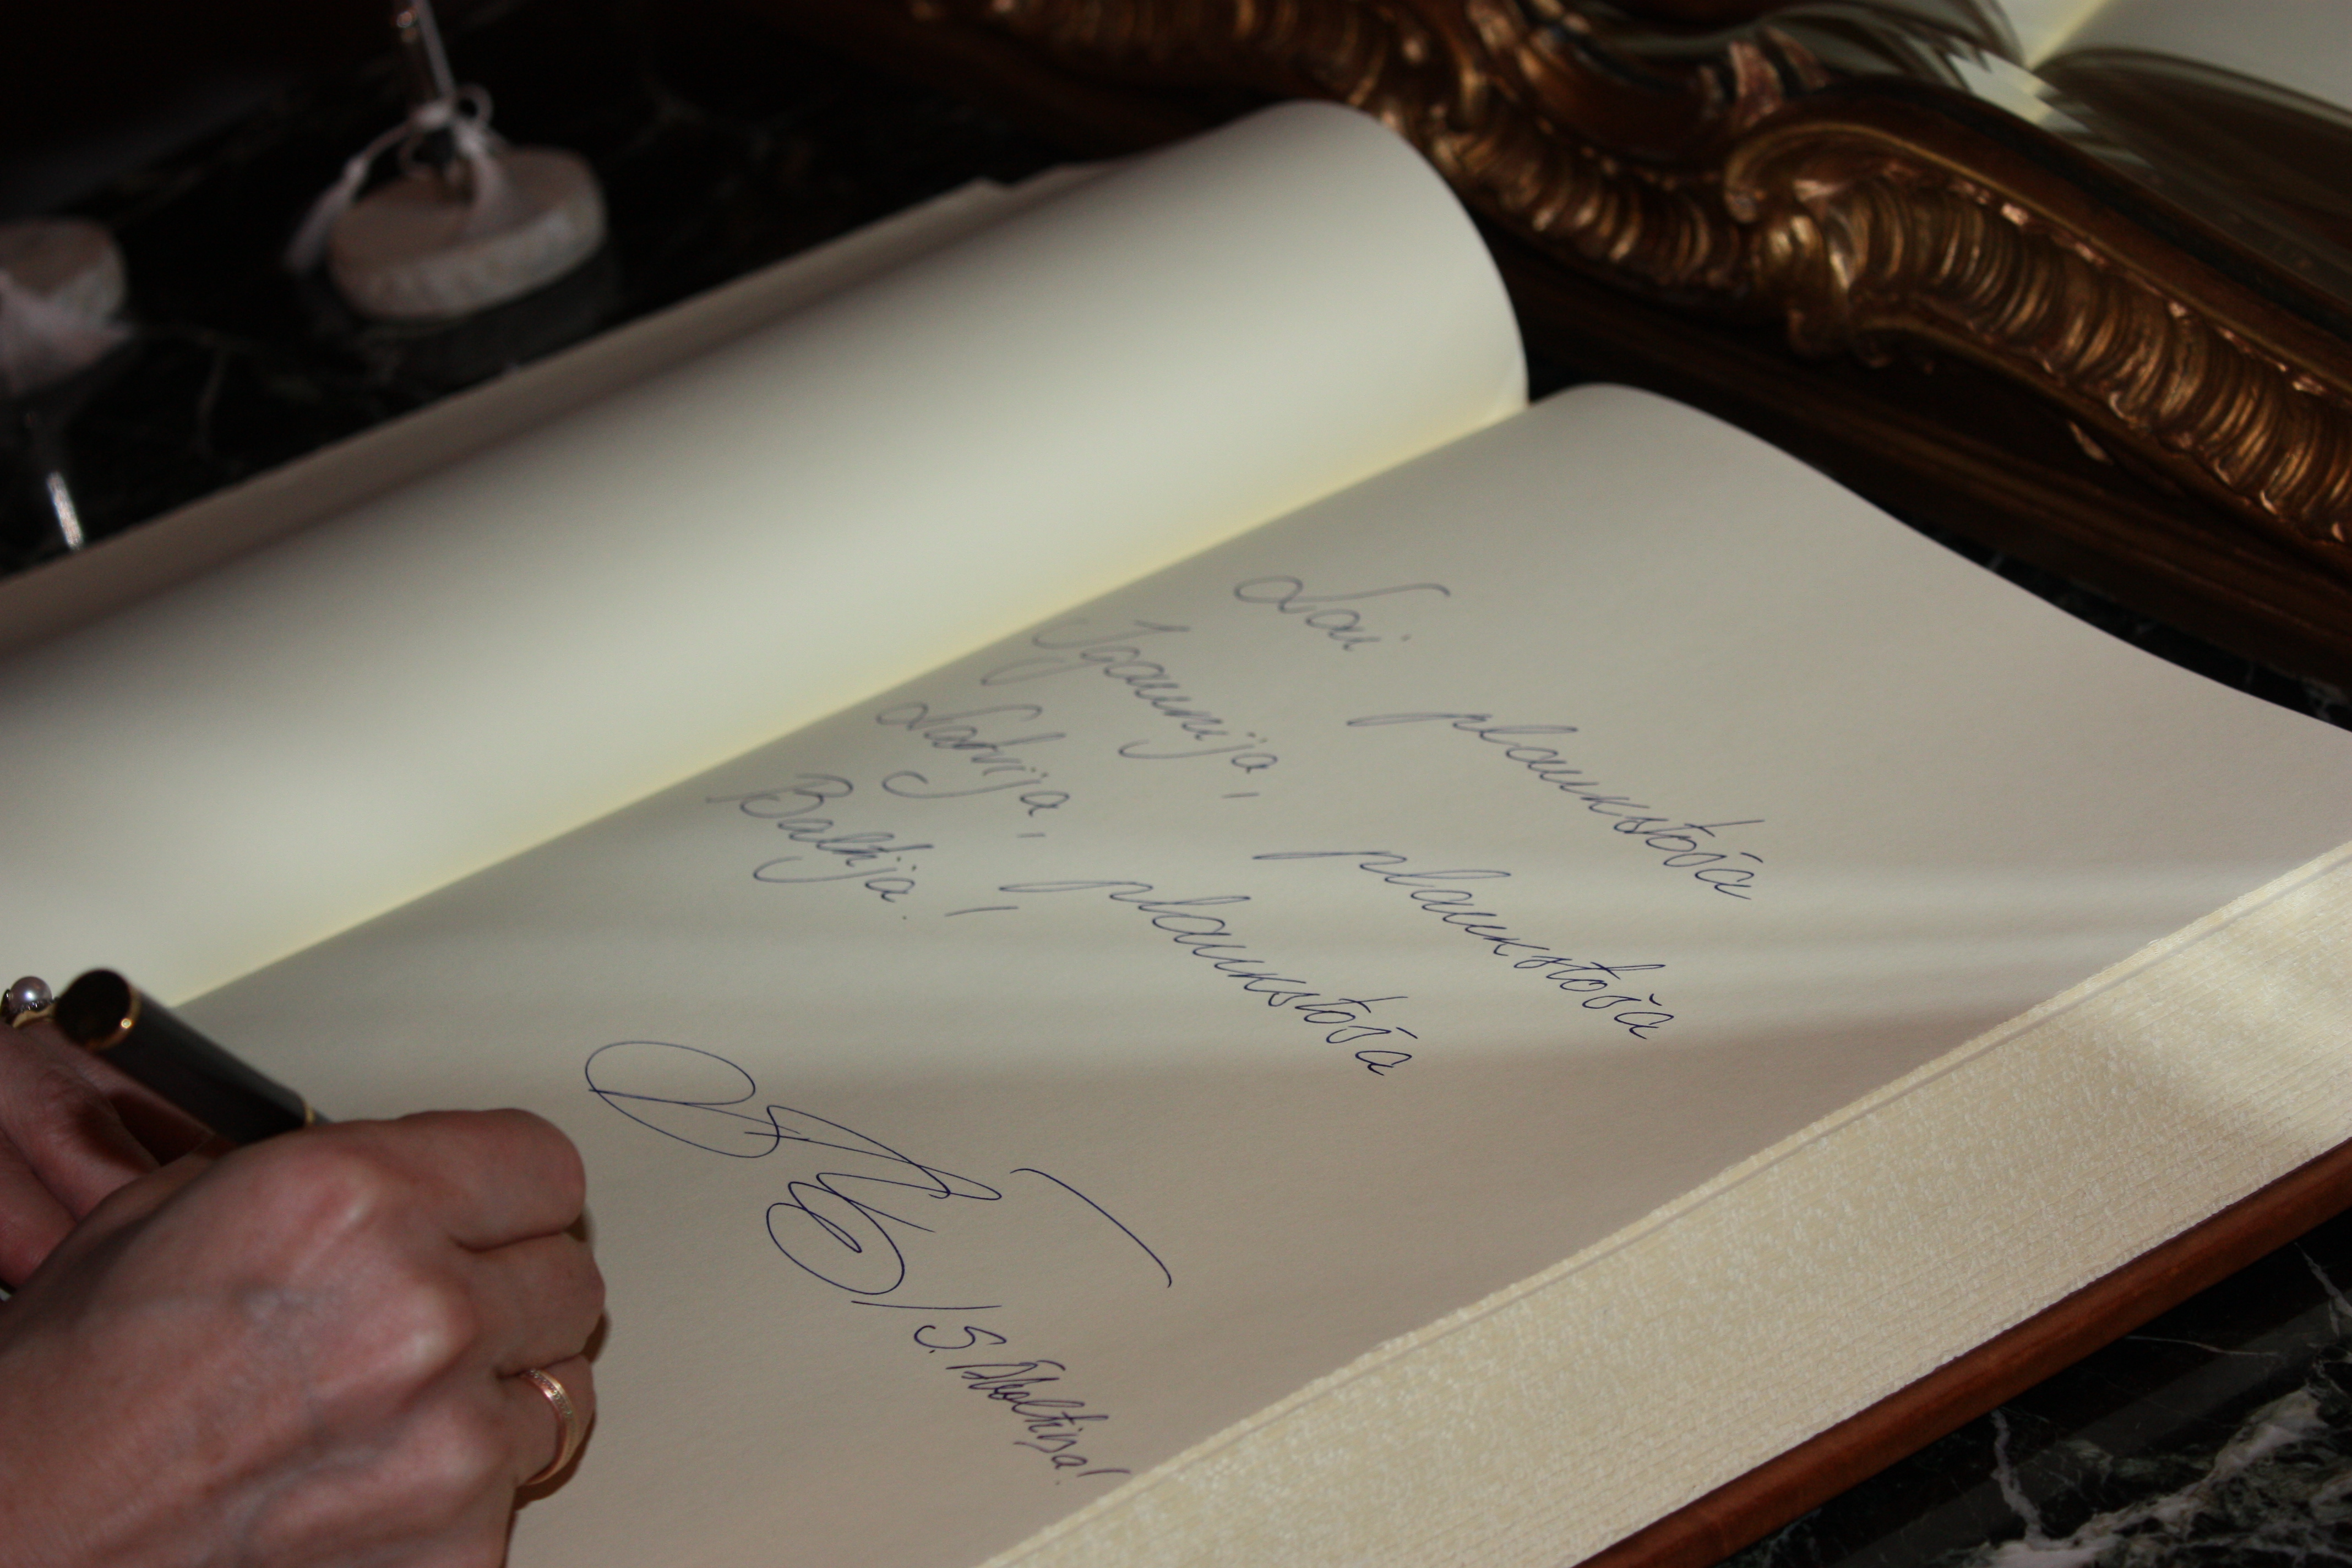 Lai plaukstoša
Igaunija, plaukstoša
Latvija, plaukstoša
Baltija!
/S. Āboltiņa/